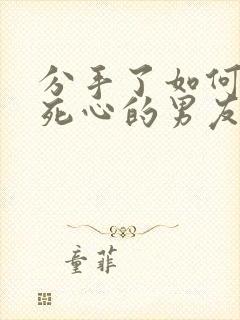 分手了如何
死心的男友
童菲